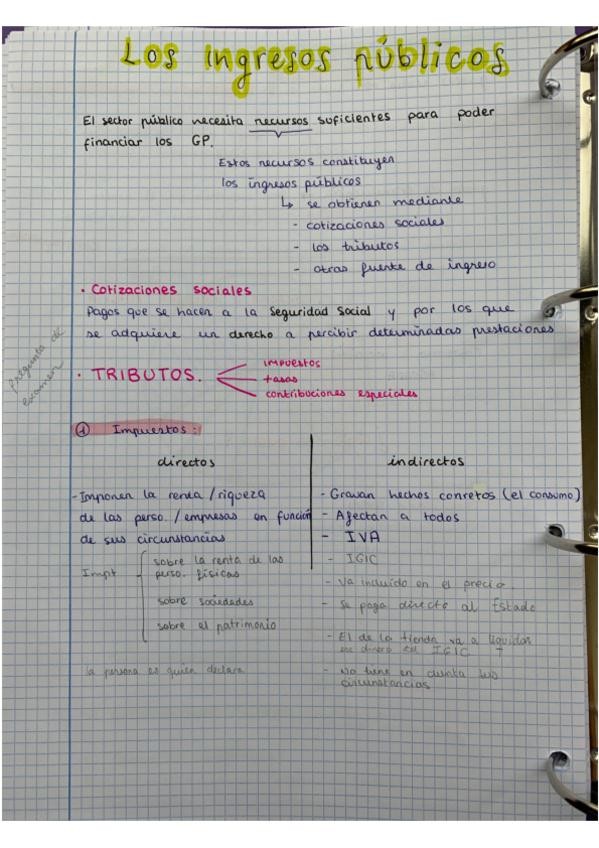 Los ingresos públicos
El sector público necesita recursos suficientes para poder
financiar los GP.
Estos recursos constituyen
los ingresos públicos
↳ se obtienen mediante
- cotizaciones sociales
- los tributos
- otras fuente de ingreso
· Cotizaciones sociales
Pagos que se hacen a la Seguridad Social y por los que
se adquiere un derecho a percibir determinadas prestaciones
pregunta de
examen
· TRIBUTOS.
impuestos
tasas
contribuciones especiales
① Impuestos:
directos
- Imponen la renta / riqueza
de las perso. / empresas en función
de sus circunstancias
Impt
sobre la renta de las
perso. físicas
sobre sociedades
sobre el patrimonio
la persona es quién declara
indirectos
- Gravan hechos conretos (el consumo)
- Afectan a todos
- IVA
- IGIC
- Va incluido en el precio
- Se paga directo al Estado
- El de la tienda va a liquidar
ese dinero IGIC
- No tiene en cuenta las
circunstancias